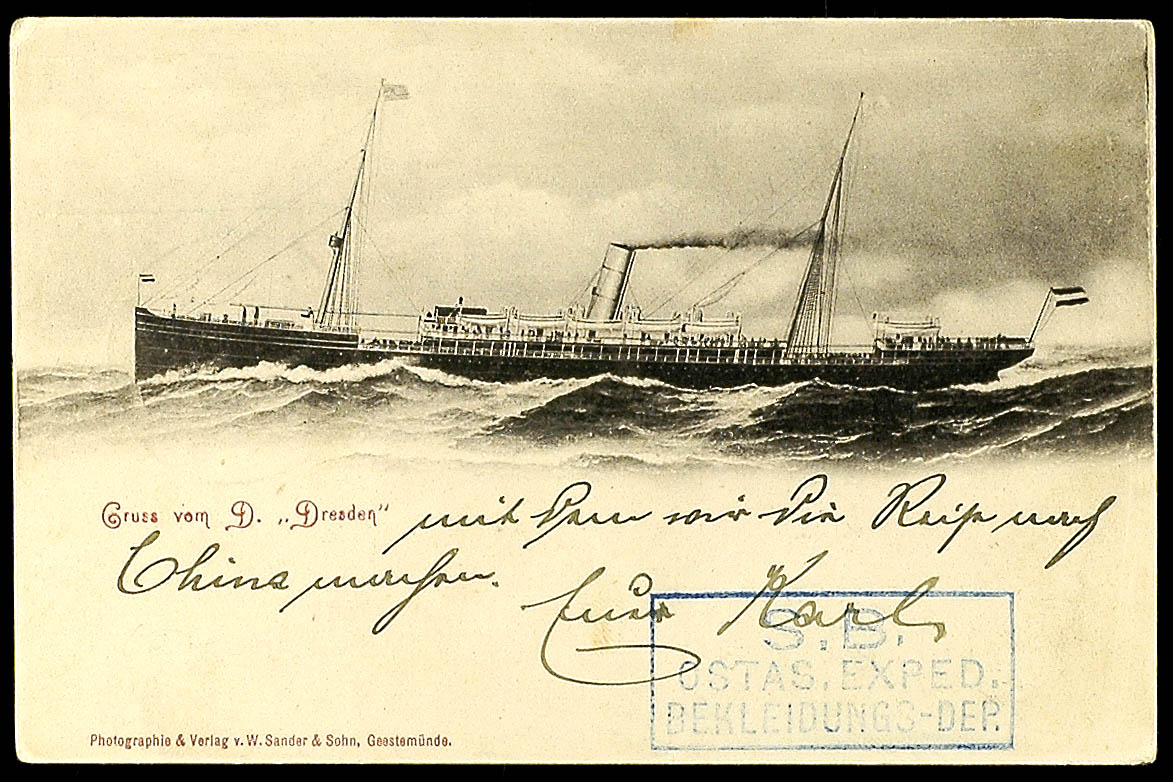 Gruss vom D. „Dresden" mit dem wir die Reise nach
China machen.
Euer Karl
S.B.
OSTAS. EXPED.
BEKLEIDUNGS-DEP.
Photographie & Verlag v. W. Sander & Sohn, Geestemünde.